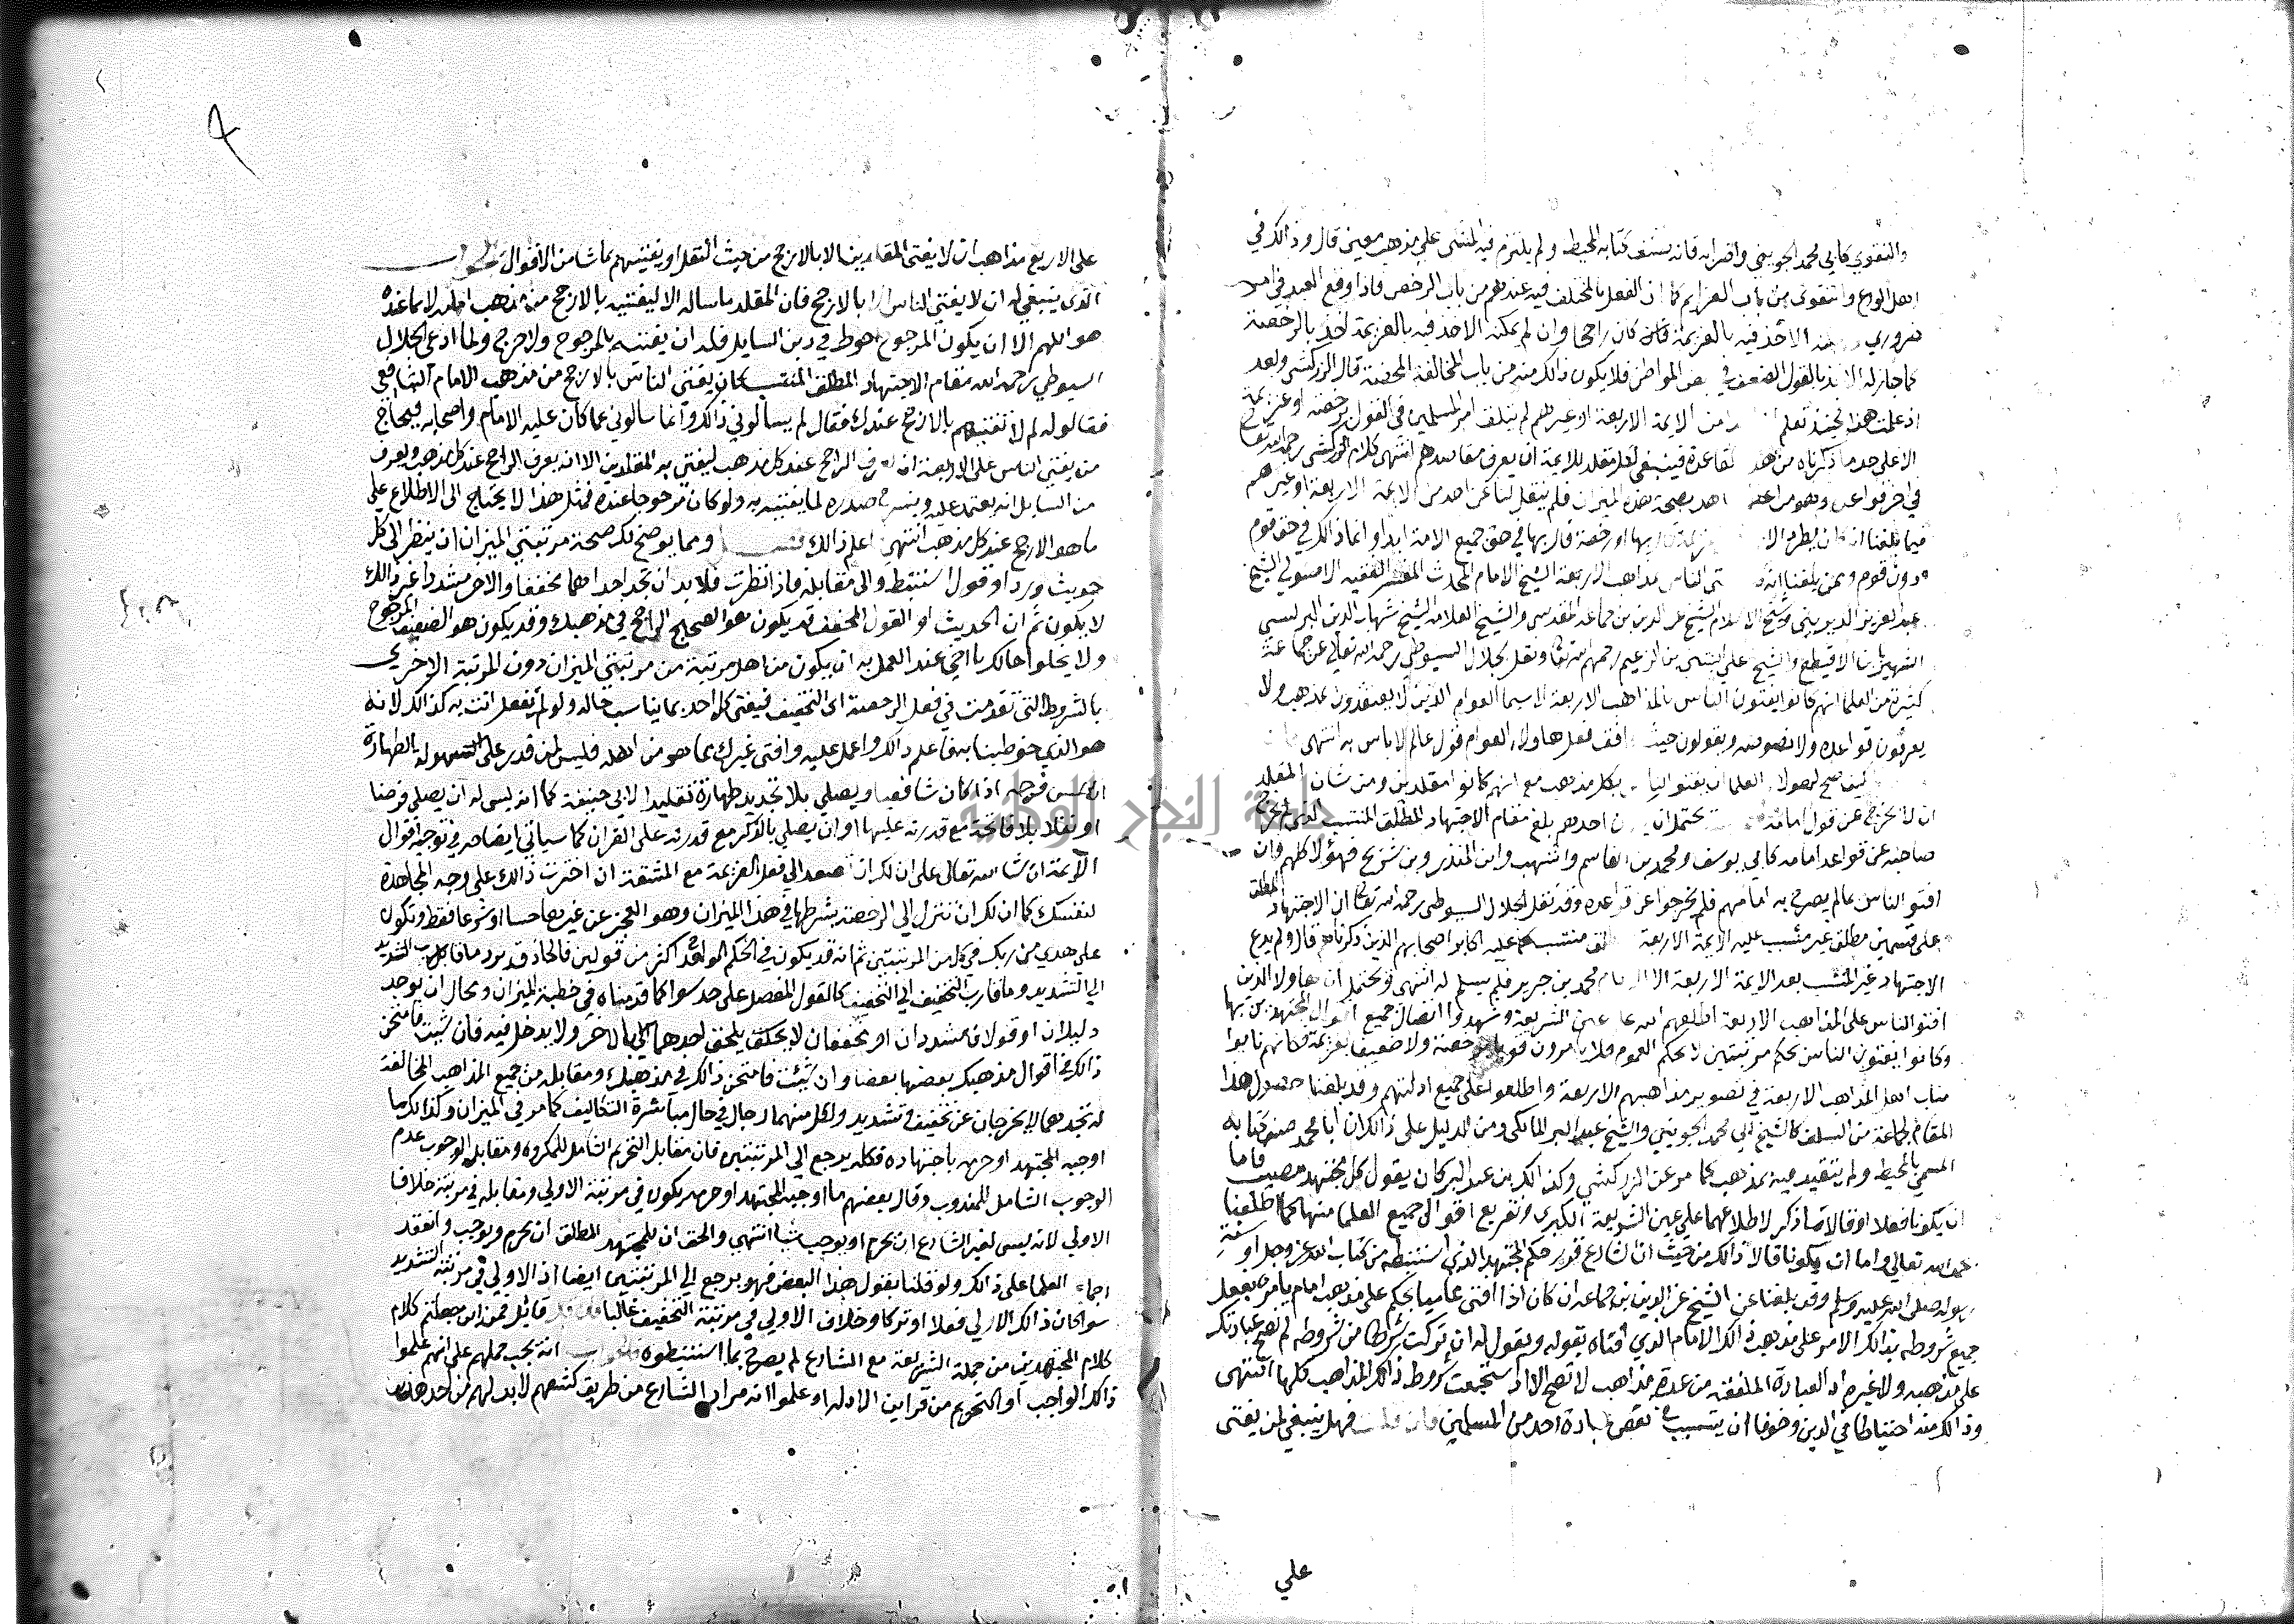 والتقوى كابي محمد الجويني واضرابه فانه صنف كتابه المحيط ولم يلتزم فيه المشي على مذهب معين قال وذالك في
اهل الورع والتقوى من باب العزايم كما ان الفعل بالمختلف فيه عندهم من باب الرخص فاذا وقع العبد في امر
ضروري الاخذ فيه بالعزيمة فان كان راجحا وان لم يمكنه الاخذ فيه بالعزيمة اخذ بالرخصة
كما جاز له الاخذ بالقول الضعيف في بعض المواطن فلا يكون ذالك منه من باب المخالفة المحضة قال الزركشي وبعد
اذ علمت هذا فحينئذ تعلم من الايمة الاربعة او غيرهم لم يتقلد امر المسلمين في القول برخصة او عزيمة
الا على حد ما ذكرناه من هذه القاعدة فينبغي لكل مقلد للايمة ان يعرف مقاصدهم انتهى كلام الزركشي رحمه الله تعالى
في اخر قواعده وهو من اعظم شاهد بصحة هذه الميزان فلم ينقل لنا عن احد من الايمة الاربعة او غيرهم
فيما بلغنا انه كان يطرد الامر عزيمة قال بها او رخصة قال بها في حق جميع الامة ابدا وانما ذالك في حق قوم
دون قوم وممن بلغنا انه يفتي الناس بالمذاهب الاربعة الشيخ الامام المحدث المفسر الفقيه الاصولي الشيخ
عبد العزيز الديريني وشيخ الاسلام الشيخ عز الدين بن جماعة المقدسي والشيخ العلامة الشيخ شهاب الدين البرلسي
الشهير بابن الاقيطع والشيخ علي النبتيتي الضرير رحمهم الله تعالى ونقل الجلال السيوطي رحمه الله تعالى عن جماعة
كثيرة من العلما انهم كانوا يفتون الناس بالمذاهب الاربعة لا سيما العوام الذين لا يعتقدون بمذهب ولا
يعرفون قواعده ولا نصوصه ويقولون حيث وافق فعل هاولاء العوام قول عالم لا باس به انتهى
كيف صح لهولاء العلما ان يفتوا الناس بكل مذهب مع انهم كانوا مقلدين ومن شان المقلد
ان لا يخرج عن قول امامه يحتمل ان يكون احدهم بلغ مقام الاجتهاد المطلق المنتسب الذي لم يخرج
صاحبه عن قواعد امامه كابي يوسف ومحمد بن القاسم واشهب وابن المنذر وبن شريح فهؤلا كلهم وان
افتوا الناس بما لم يصرح به امامهم فلم يخرجوا عن قواعده وقد نقل الجلال السيوطي رحمه الله تعالى ان الاجتهاد المطلق
على قسمين مطلق غير منتسب عليه الايمة الاربعة ومطلق منتسب كما عليه اكابر اصحابهم الذين ذكرناهم قال ولم يدع
الاجتهاد غير المنتسب بعد الايمة الاربعة الا الامام محمد بن جرير فلم يسلم له انتهى ويحتمل ان هاولا الذين
افتوا الناس على المذاهب الاربعة اطلعهم الله على عين الشريعة وشهدوا اتصال جميع اقوال المجتهدين بها
وكانوا يفتون الناس بحكم مرتبتين لا بحكم العموم فلا يامرون قويا برخصة ولا ضعيفا بعزيمة فكانهم نابوا
مناب اهل المذاهب الاربعة في تصوير مذاهبهم الاربعة واطلعوا على جميع ادلتهم وقد بلغنا حصول هذا
المقام لجماعة من السلف كالشيخ ابي محمد الجويني والشيخ عبد البر المالكي ومن الدليل على ذالك ان ابا محمد صنف كتابه
المسمى بالمحيط ولم يتقيد فيه بمذهب كما مر عن الزركشي وكذالك بن عبد البر كان يقول كل مجتهد مصيب فاما
ان يكونا فعلا او قالا ما ذكر لاطلاعهما على عين الشريعة الكبرى وتفريع اقوال جميع العلما منها كما اطلعنا
بحمد الله تعالى واما ان يكونا قالا ذالك من حيث ان الشارع قرر حكم المجتهد الذي استنبطه من كتاب الله عز وجل او سنة
رسوله صلى الله عليه وسلم وقد بلغنا عن الشيخ عز الدين بن جماعة انه كان اذا افتى عاميا بحكم على مذهب امام يامره بفعل
جميع شروطه بذالك الامر على مذهب ذالك الامام الذي افتاه بقوله ويقول له ان تركت شرطا من شروطه لم تصح عبادتك
على مذهبه ولا غيره اذ العبادة الملفقة من عدة مذاهب لا تصح الا اذا استجمعت شروط ذالك المذاهب كلها انتهى
وذالك منه احتياطا في الدين وخوفا ان يتسبب في نقص عبادة احد من المسلمين فان قلت فهل ينبغي لمن يفتي
علي
على الاربع مذاهب ان لا يفتي المقلدين الا بالارجح من حيث النقل او يفتيهم بما شا من الاقوال فالجواب
الذي ينبغي له ان لا يفتي الناس الا بالارجح فان المقلد ما ساله الا ليفتيه بالارجح من مذهب امامه لا بما عنده
هو اللهم الا ان يكون المرجوح احوط في دين السايل فله ان يفتيه بالمرجوح ولا حرج ولما ادعى الجلال
السيوطي رحمه الله مقام الاجتهاد المطلق المنتسب كان يفتي الناس بالارجح من مذهب الامام الشافعي
فقالوا له لم لا تفتيهم بالارجح عندك فقال لم يسالوني ذالك وانما سالوني عما كان عليه الامام واصحابه فيحتاج
من يفتي الناس على الاربعة ان يعرف الراجح عند كل مذهب ليفتي به المقلدين الا انه يعرف الراجح عند كل مذهب ويعرف
من السايل انه يعتمد عليه وينشرح صدره لما يفتيه به ولو كان مرجوحا عنده فمثل هذا لا يحتاج الى الاطلاع على
ما هو الارجح عند كل مذهب انتهى اعلم ذالك ومما يوضح لك صحة مرتبتي الميزان ان ينظر الى كل
حديث ورد او قول استنبط والى مقابله فاذا نظرت فلا بد ان تجد احداهما مخففا والاخر مشددا غير ذالك
لا يكون ثم ان الحديث او القول المخفف قد يكون هو الصحيح الراجح في مذهبك وقد يكون هو الضعيف المرجوح
ولا يخلوا حالك يا اخي عند العمل به ان يكون من اهل مرتبة من مرتبتي الميزان دون المرتبة الاخرى
بالشروط التي تقدمت في فعل الرخصة اى التخفيف فيفتي كل احد بما يناسب حاله ولو لم تفعل انت به كذالك لانه
هو الذي خوطبنا به فاعلم ذالك واعمل عليه وافتى غيرك بما هو من اهله فليس لمن قدر على السهولة بالطهارة
ان يمس فرجه اذا كان شافعيا ويصلي بلا تجديد طهارة تقليدا لابي حنيفة كما انه ليس له ان يصلي فرضا
او نفلا بلا فاتحة مع قدرته عليها او ان يصلي بالذكر مع قدرته على القران كما سياتي ايضاحه في توجيه اقوال
الايمة ان شا الله تعالى على ان لك ان تصعد الى فعل العزيمة مع المشقة ان اخترت ذالك على وجه المجاهدة
لنفسك كما ان لك ان تنزل الى الرخصة بشرطها في هذا الميزان وهو العجز عن غيرها حسا او شرعا فقط وتكون
على هدى من ربك في كل من المرتبتين ثم انه قد يكون في الحكم الواحد اكثر من قولين فالحاذق يرد ما قارب التشديد
الى التشديد وما قارب التخفيف الى التخفيف كالقول المفصل على حد سوا كما قدمناه في خطبة الميزان ومحال ان يوجد
دليلان او قولان مشددان او مخففان لا يمكن يلحق احدهما الى الاخر ولا يدخل فيه فان شئت فامتحن
ذالك في اقوال مذهبك بعضها بعضا وان شئت فامتحن ذالك في مذهبك ومقابله من جميع المذاهب المخالفة
له تجدهما لا يخرجان عن تخفيف وتشديد ولكل منهما رجال في حال مباشرة التكاليف كما مر في الميزان وكذالك ما
اوجبه المجتهد او حرمه باجتهاده فكله يرجع الى المرتبتين فان مقابل التحريم الشامل للمكروه ومقابل الوجوب عدم
الوجوب الشامل للمندوب وقال بعضهم ما اوجبه المجتهد او حرمه يكون في مرتبة الاولى ومقابله في مرتبة خلاف
الاولى لانه ليس لغير الشارع ان يحرم او يوجب شيا انتهى والحق ان للمجتهد المطلق ان يحرم ويوجب وانعقد
اجماع العلما على ذالك ولو قلنا بقول هذا البعض فهو يرجع الى المرتبتين ايضا اذ الاولى في مرتبة التشديد
سوا كان ذالك الاولى فعلا او تركا وخلاف الاولى في مرتبة التخفيف غالبا فان قال قائل فمن اين جعلتم كلام
كلام المجتهدين من جملة الشريعة مع الشارع لم يصرح بما استنبطوه فالجواب انه يجب حملهم على انهم علموا
ذالك الواجب او التحريم من قراين الادلة او علموا انه مراد الشارع من طريق كشفهم لا بد لهم من احد هذين